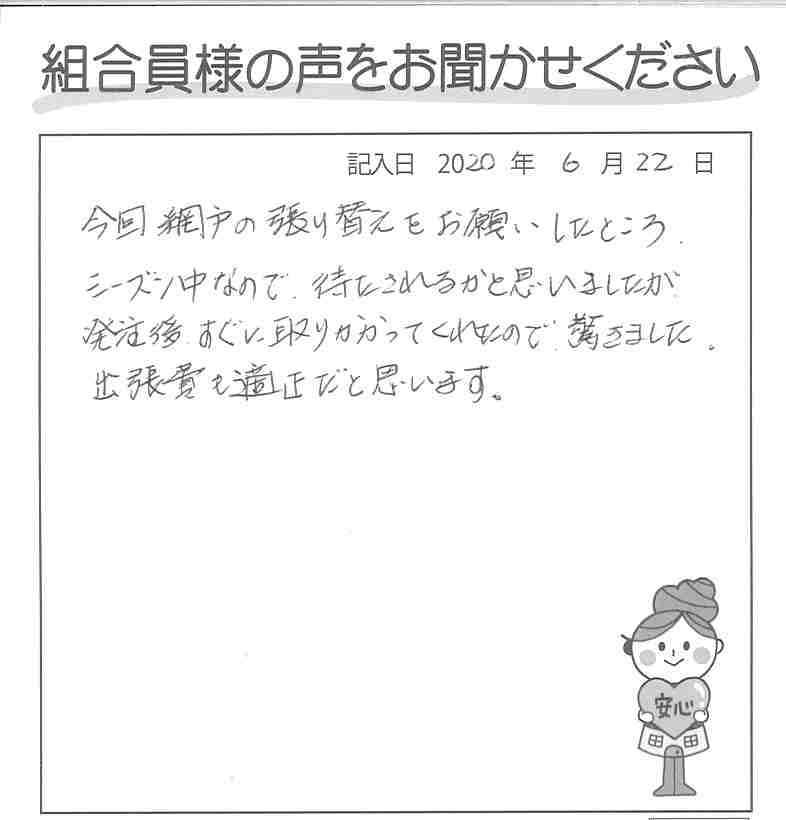 組合員様の声をお聞かせください
記入日 2020 年 6 月 22 日
今回 網戸の張り替えをお願いしたところ、
シーズン中なので、待たされるかと思いましたが、
発注後、すぐに取りかかってくれたので、驚きました。
出張費も適正だと思います。
安心